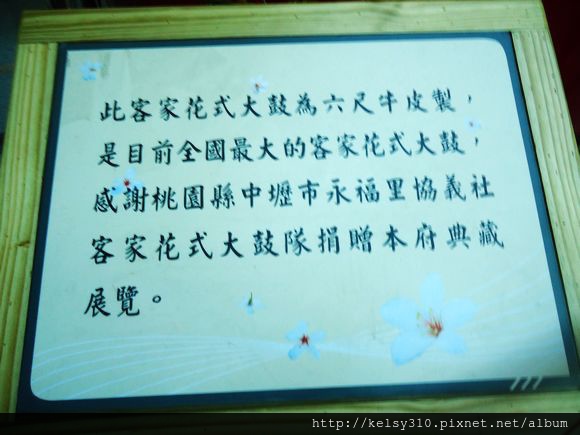 此客家花式大鼓為六尺牛皮製，
是目前全國最大的客家花式大鼓，
感謝桃園縣中壢市永福里協義社
客家花式大鼓隊捐贈本府典藏
展覽。
http://kelsy310.pixnet.net/album